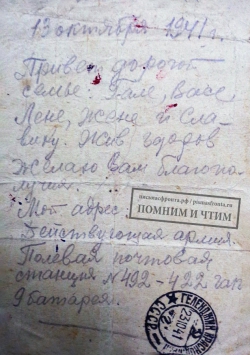 13 октября 1941 г.
Привет дорогой
семье. Гале, Ване
Лене, Жене и Сла-
вику. Жив здоров
Желаю вам благопо-
лучия.
письмасфронта.рф / pismasfronta.ru
ПОМНИМ И ЧТИМ
Мой адрес:
Действующая армия
Полевая почтовая
станция №492-422 гап
9 батарея.
СССР
231041